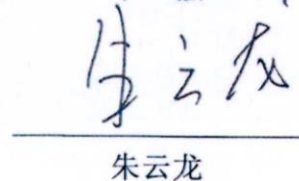 朱云龙
朱云龙